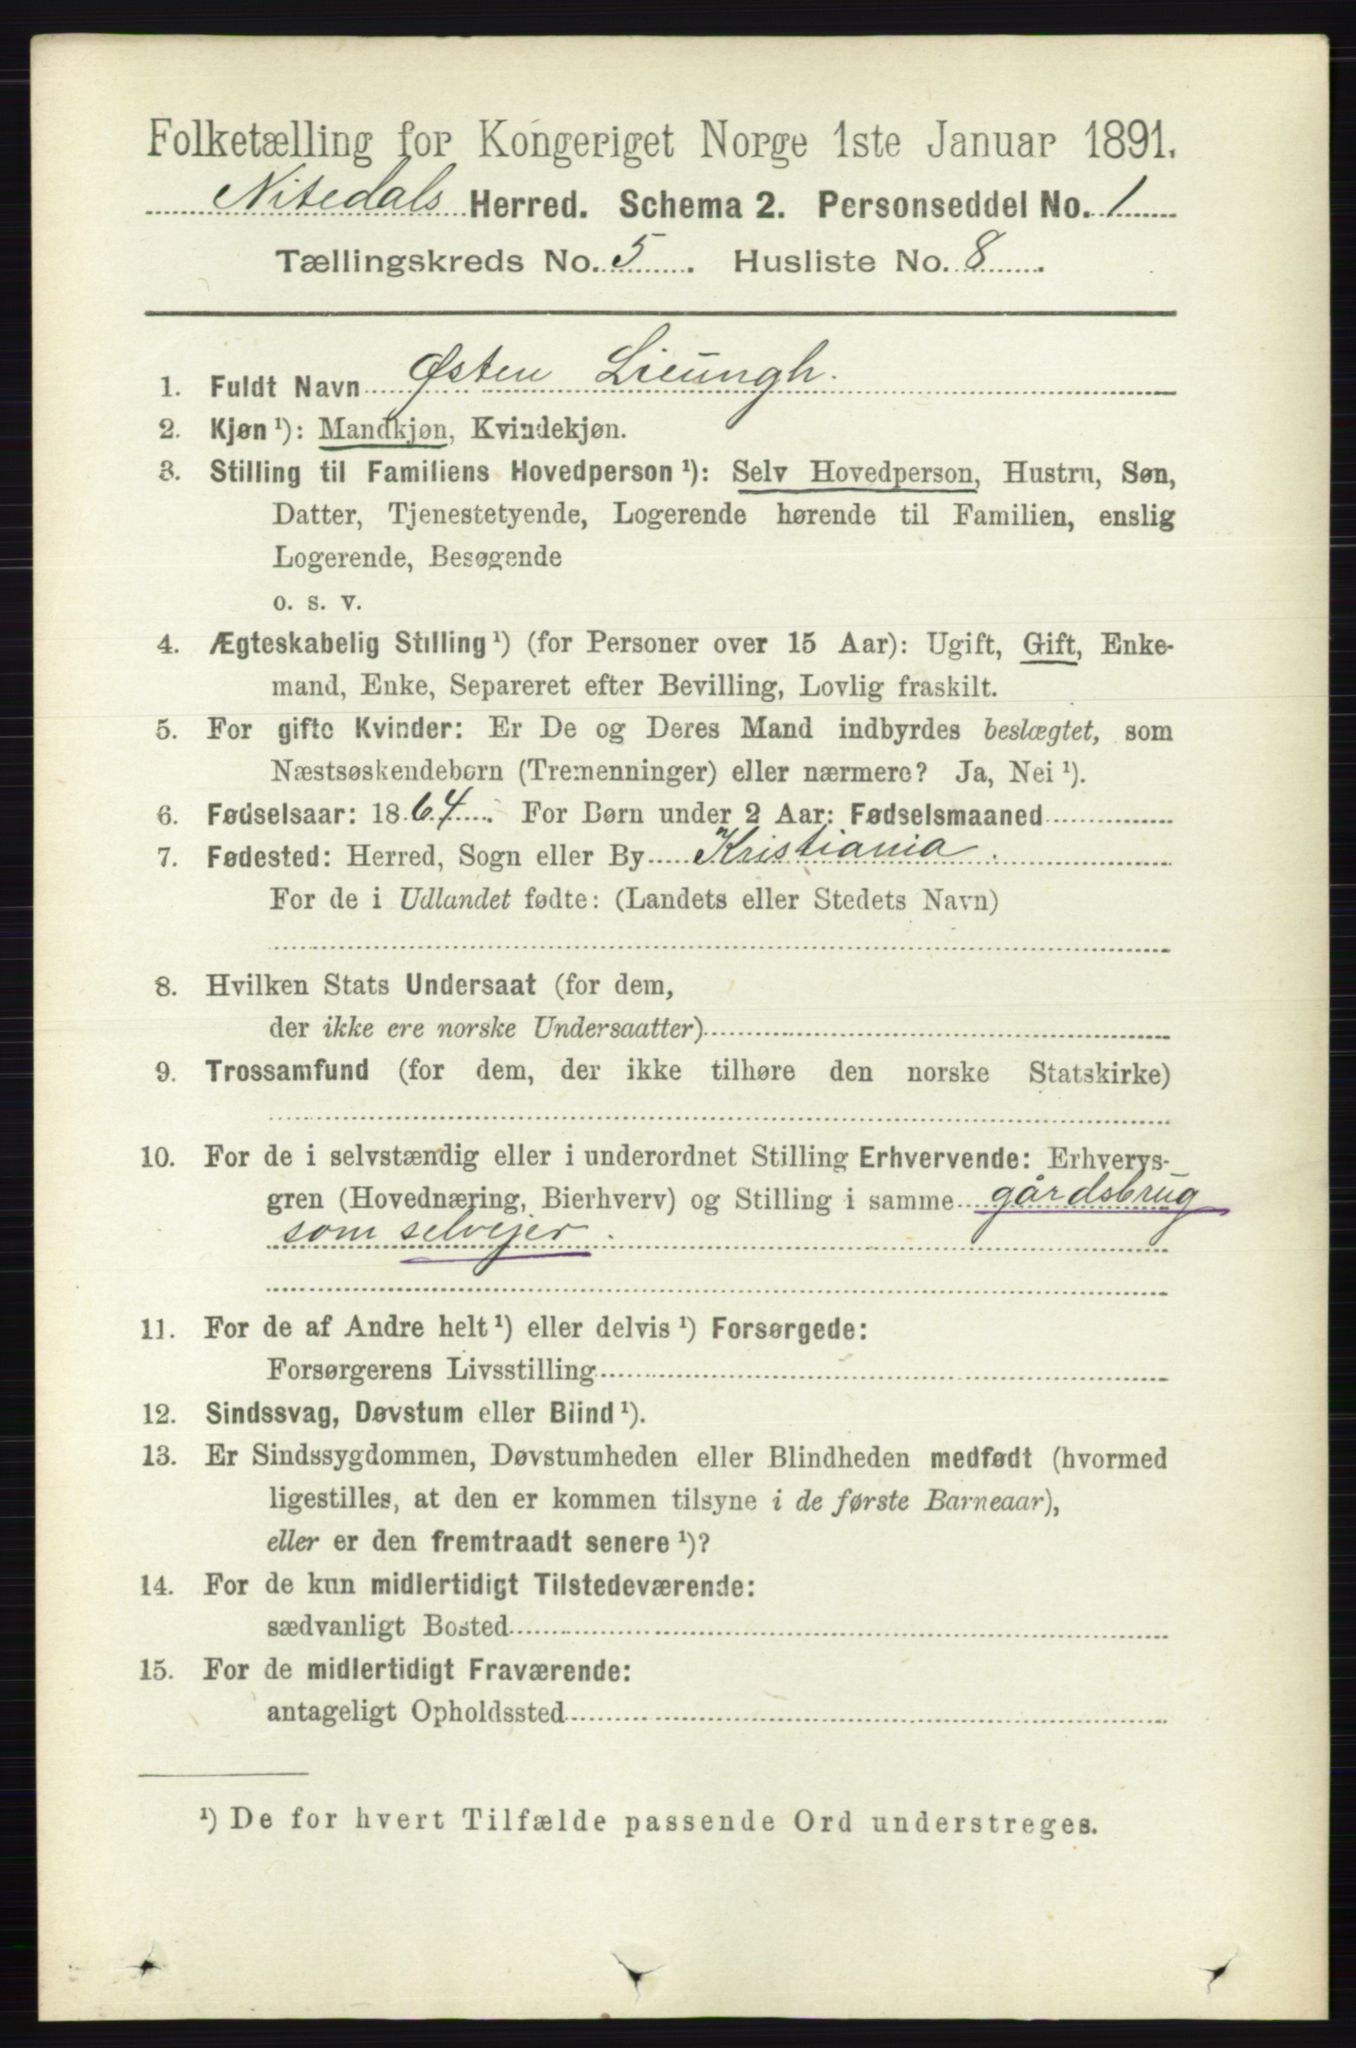 Folketælling for Kongeriget Norge 1ste Januar 1891.
Nitedals Herred. Schema 2. Personseddel No. 1
Tællingskreds No. 5. Husliste No. 8.
1. Fuldt Navn Østen Lieungh.
2. Kjøn ¹): Mandkjøn, Kvindekjøn.
3. Stilling til Familiens Hovedperson ¹): Selv Hovedperson, Hustru, Søn,
Datter, Tjenestetyende, Logerende hørende til Familien, enslig
Logerende, Besøgende
o. s. v.
4. Ægteskabelig Stilling ¹) (for Personer over 15 Aar): Ugift, Gift, Enke-
mand, Enke, Separeret efter Bevilling, Lovlig fraskilt.
5. For gifte Kvinder: Er De og Deres Mand indbyrdes beslægtet, som
Næstsøskendebørn (Tremenninger) eller nærmere? Ja, Nei ¹).
6. Fødselsaar: 1864. For Børn under 2 Aar: Fødselsmaaned
7. Fødested: Herred, Sogn eller By Kristiania.
For de i Udlandet fødte: (Landets eller Stedets Navn)
8. Hvilken Stats Undersaat (for dem,
der ikke ere norske Undersaatter)
9. Trossamfund (for dem, der ikke tilhøre den norske Statskirke)
10. For de i selvstændig eller i underordnet Stilling Erhvervende: Erhvervs-
gren (Hovednæring, Bierhverv) og Stilling i samme gårdsbrug
som selvejer.
11. For de af Andre helt ¹) eller delvis ¹) Forsørgede:
Forsørgerens Livsstilling
12. Sindssvag, Døvstum eller Blind ¹).
13. Er Sindssygdommen, Døvstumheden eller Blindheden medfødt (hvormed
ligestilles, at den er kommen tilsyne i de første Barneaar),
eller er den fremtraadt senere ¹)?
14. For de kun midlertidigt Tilstedeværende:
sædvanligt Bosted
15. For de midlertidigt Fraværende:
antageligt Opholdssted
¹) De for hvert Tilfælde passende Ord understreges.